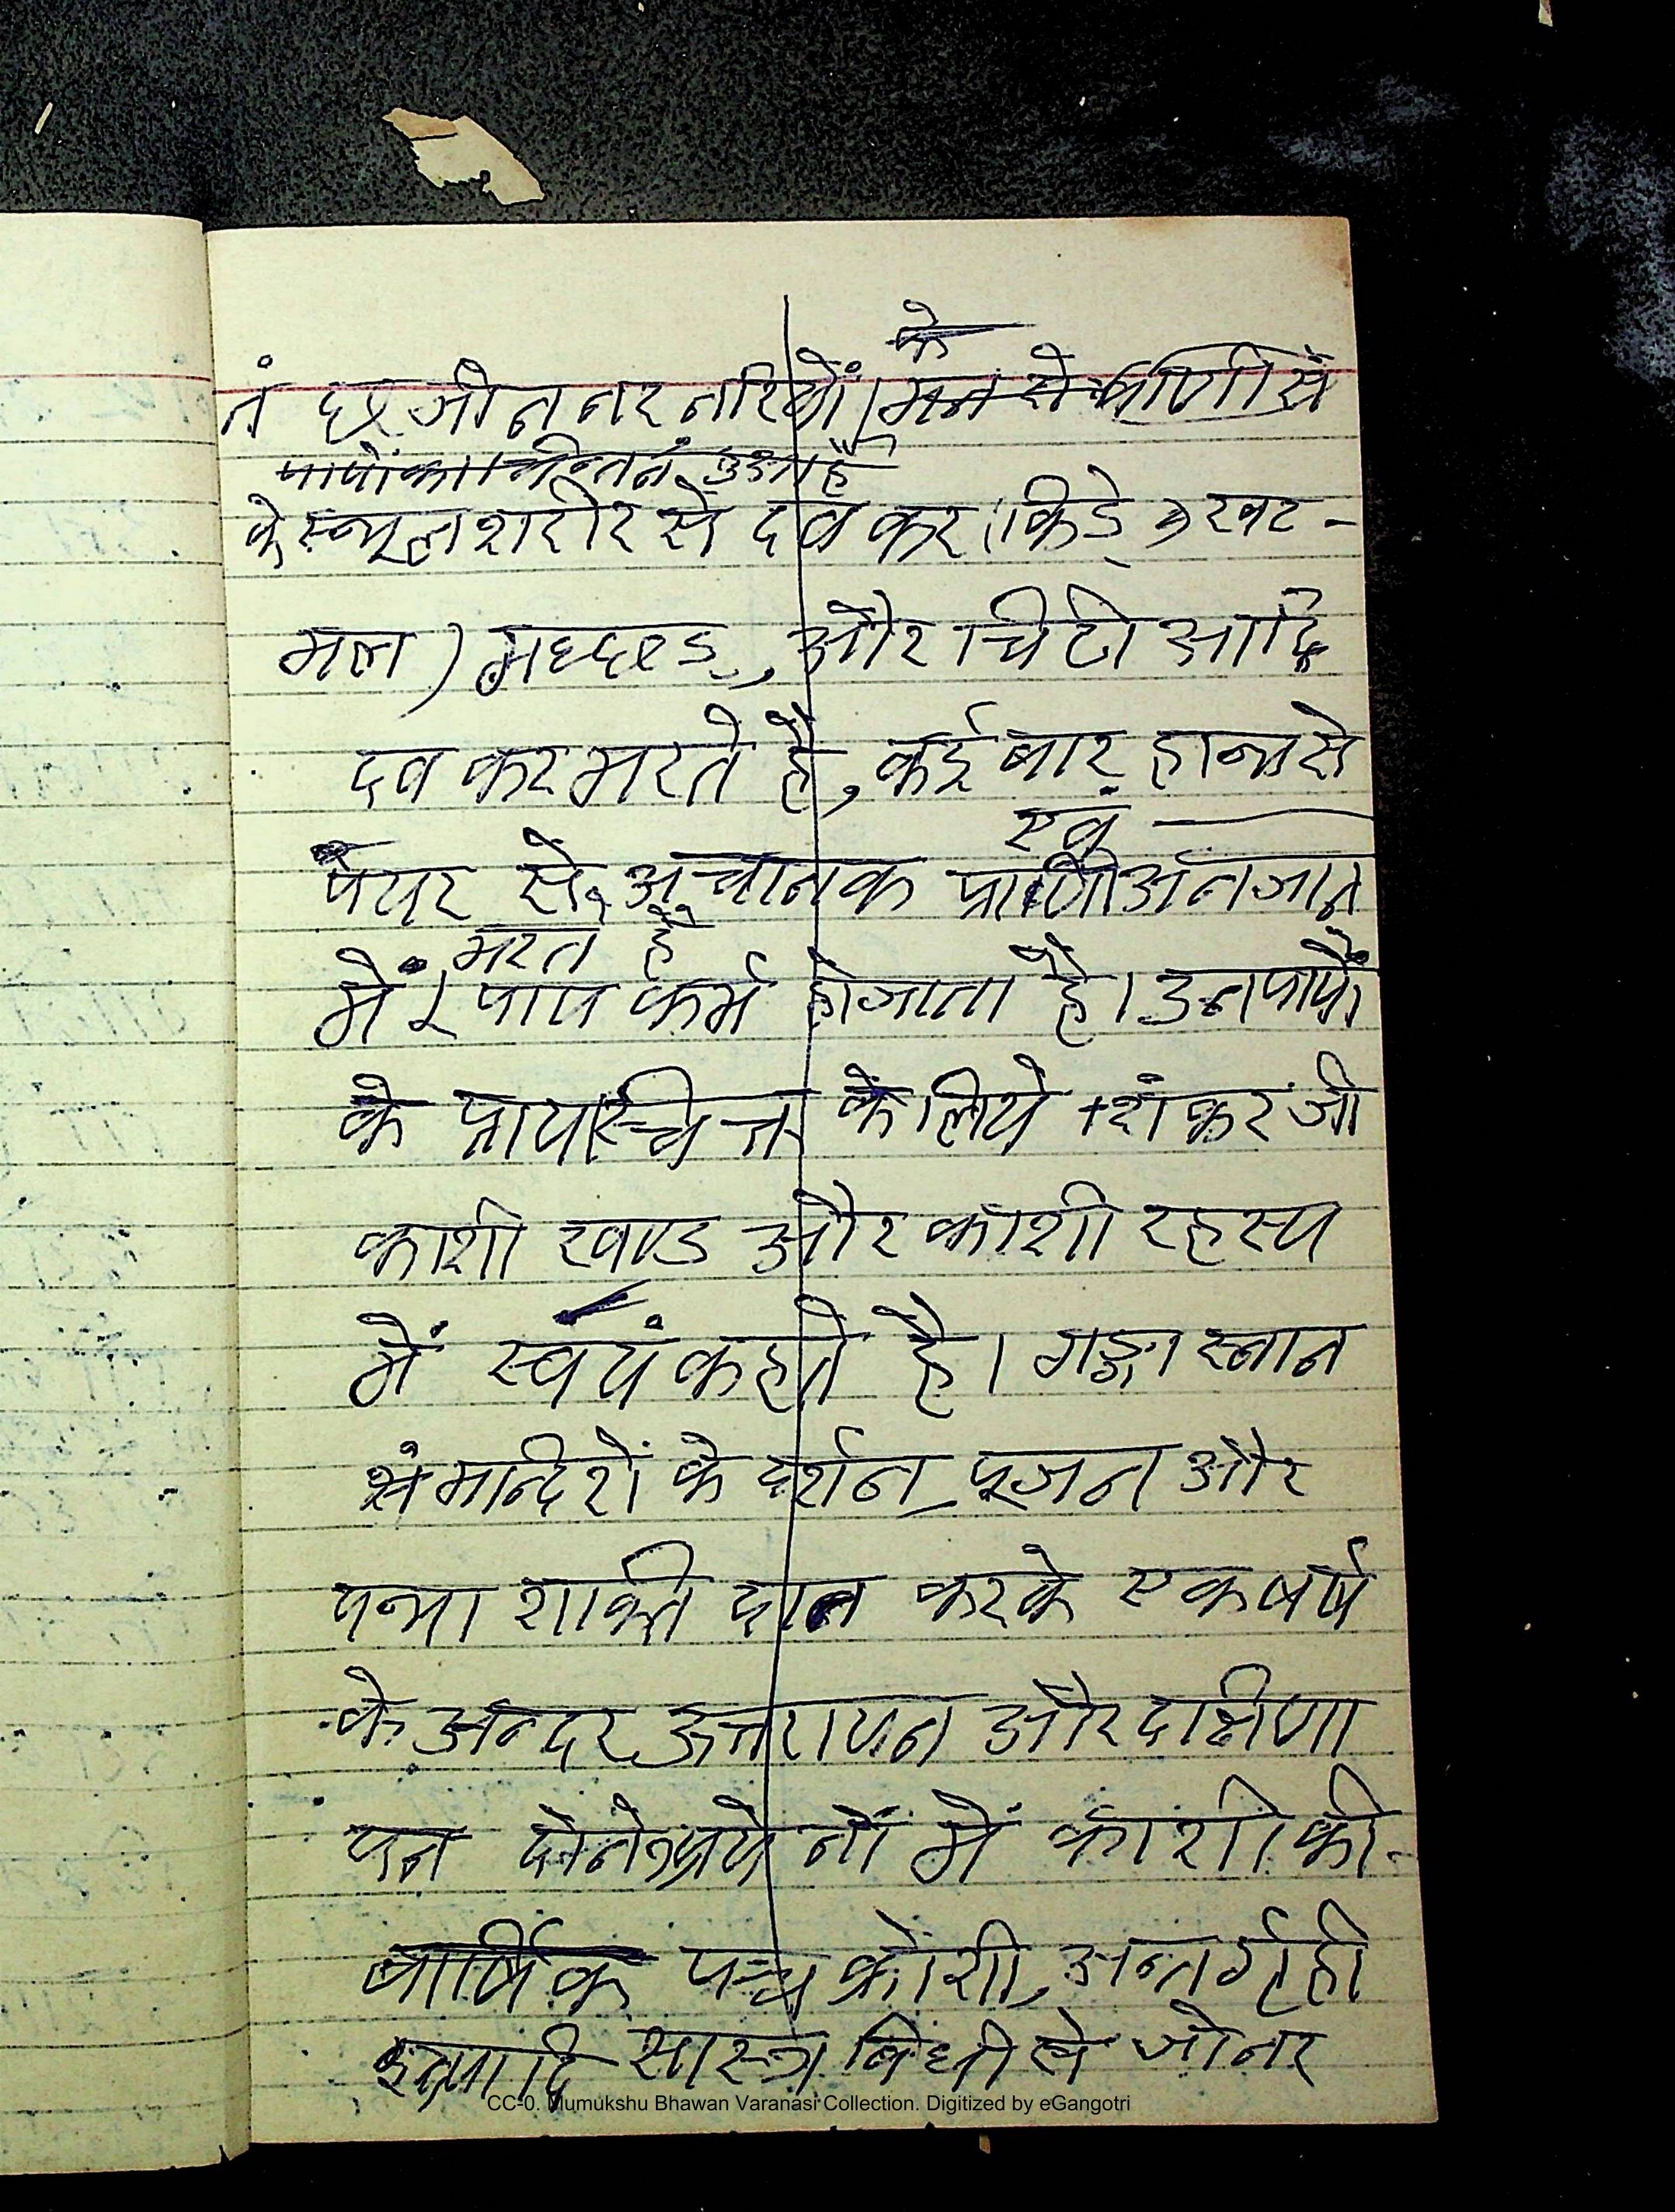 के
नं छ जो न नर नारियों । मन से प्राणी से
पापों का चिन्तन हुआ है
के स्थूल शरीर से दब कर किडे, खट-
मल, और चिटी आदि
दब कर मरते है, कई बार हाथ से
एवं
पेयर से, अचानक प्राणी अनजान
मरते हैं
में पाप कर्म होजाता है। उन पापों
के प्रायश्चित्त के लिये शंकर जी
काशी खण्ड और काशी रहस्य
में स्वयं कहते है। गङ्गा स्नान
मन्दिरों के दर्शन, पूजन और
यथा शक्ति दान करके एक वर्ष
के अन्दर उत्तरायन और दक्षिणा
यन में काशी की
वार्षिक पञ्च क्रोशी, अन्तर्गृही
इत्यादि सास्त्र विधी से जो नर
CC-0. Mumukshu Bhawan Varanasi Collection. Digitized by eGangotri